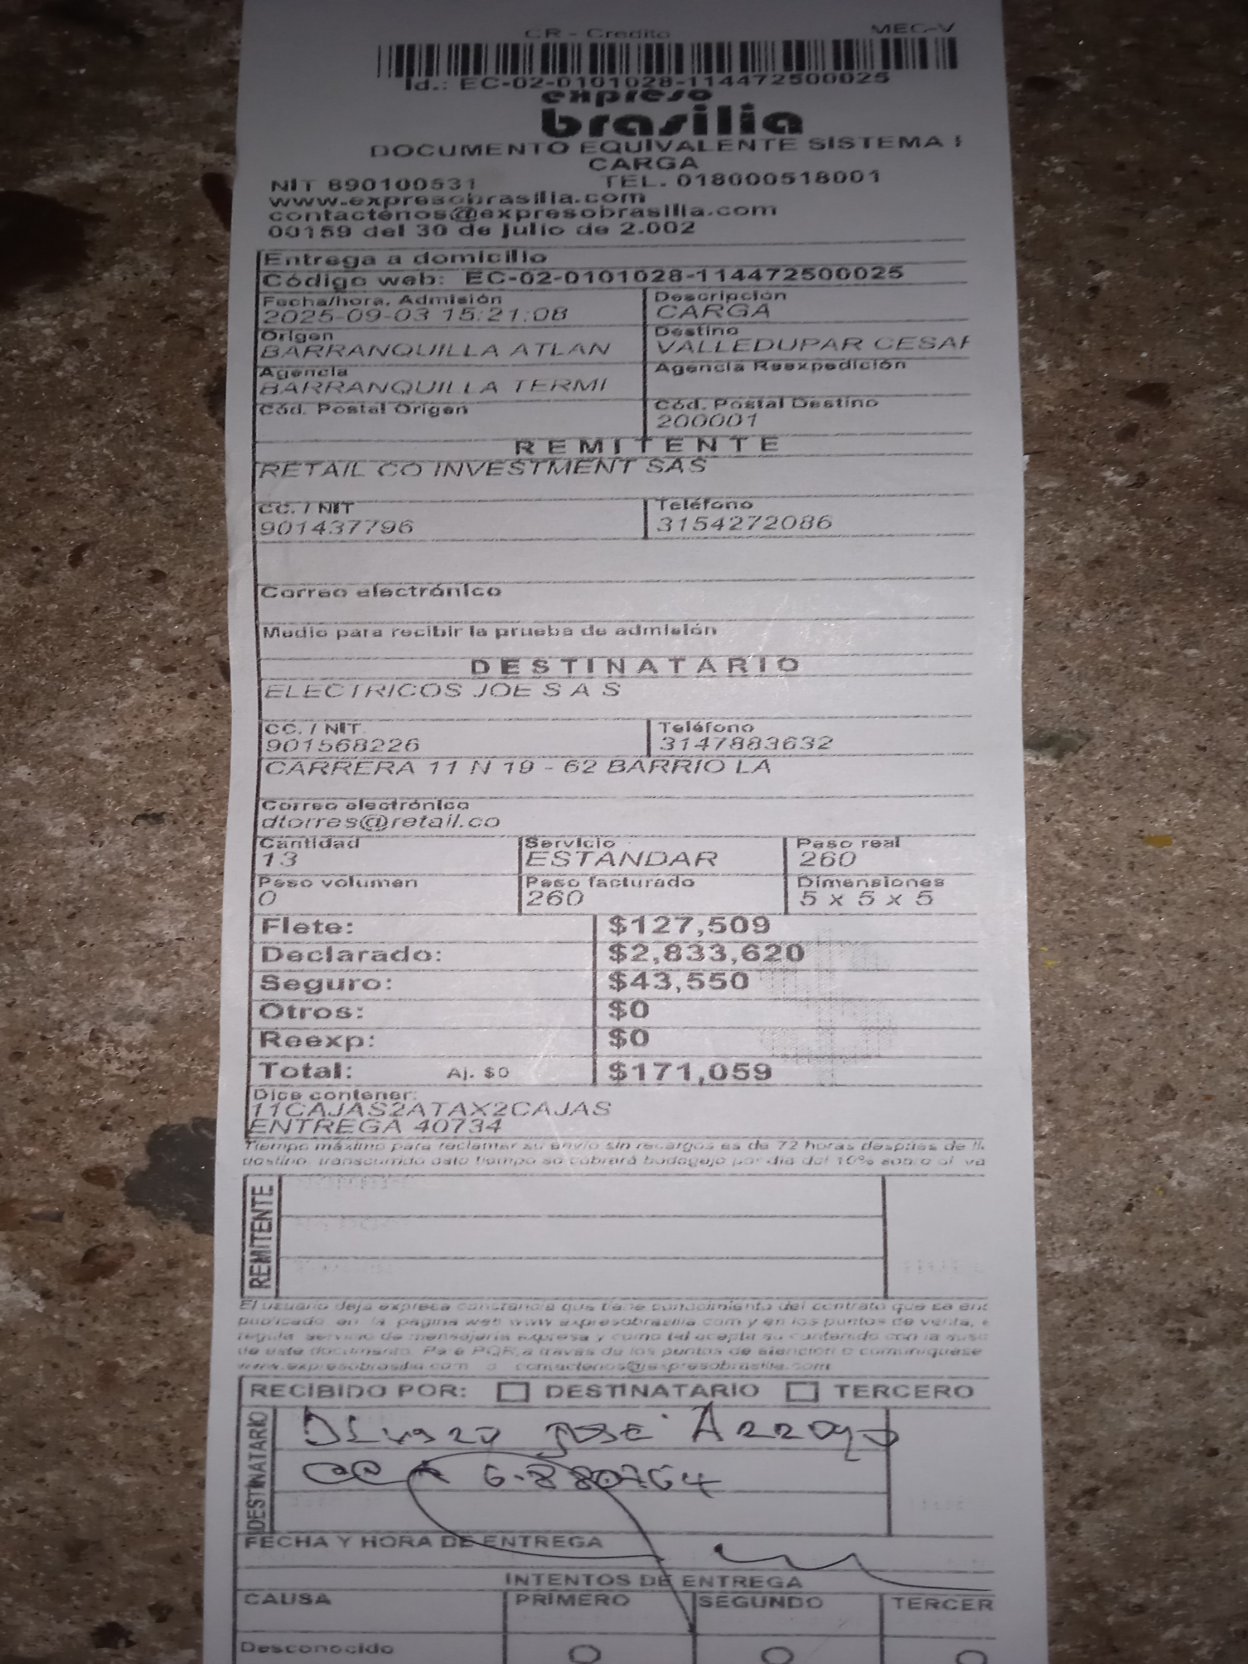 CR - Credito MEC-V
Id.: EC-02-0101028-114472500025
expreso
brasilia
DOCUMENTO EQUIVALENTE SISTEMA
CARGA
NIT 890100531 TEL. 018000518001
www.expresobrasilia.com
contactenos@expresobrasilia.com
00159 del 30 de julio de 2.002
Entrega a domicilio
Código web: EC-02-0101028-114472500025
Fecha/hora. Admisión Descripción
2025-09-03 15:21:08 CARGA
Origen Destino
BARRANQUILLA ATLAN VALLEDUPAR CESAR
Agencia Agencia Reexpedición
BARRANQUILLA TERMI
Cód. Postal Origen Cód. Postal Destino
200001
REMITENTE
RETAIL CO INVESTMENT SAS
CC. / NIT Teléfono
901437796 3154272086
Correo electrónico
Medio para recibir la prueba de admisión
DESTINATARIO
ELECTRICOS JOE S A S
CC. / NIT. Teléfono
901568226 3147883632
CARRERA 11 N 19 - 62 BARRIO LA
Correo electrónico
dtorres@retail.co
Cantidad Servicio Peso real
13 ESTANDAR 260
Peso volumen Peso facturado Dimensiones
0 260 5 x 5 x 5
Flete: $127,509
Declarado: $2,833,620
Seguro: $43,550
Otros: $0
Reexp: $0
Total: Aj. $0 $171,059
Dice contener:
11CAJAS2ATAX2CAJAS
ENTREGA 40734
Tiempo máximo para reclamar su envío sin recargos es de 72 horas después de
destino, transcurrido este tiempo se cobrará bodegaje por día del 10% sobre el va
REMITENTE
El usuario deja expresa constancia que tiene conocimiento del contrato que se
publicado en la página web www.expresobrasilia.com y en los puntos de venta,
regula servicio de mensajería expresa y como tal acepta su contenido con la
de este documento. Para PQR, a través de los puntos de atención o comuníquese
www.expresobrasilia.com o contactenos@expresobrasilia.com
RECIBIDO POR: DESTINATARIO TERCERO
DESTINATARIO
JOSE ARROYO
FECHA Y HORA DE ENTREGA
INTENTOS DE ENTREGA
CAUSA PRIMERO SEGUNDO TERCER
Desconocido